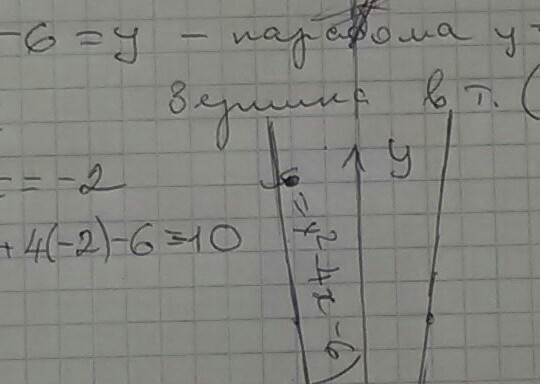 -6 = y - парабола y
Вершина в т. (
= = -2
+ 4(-2) - 6 = 10
y
y = x² - 4x - 6